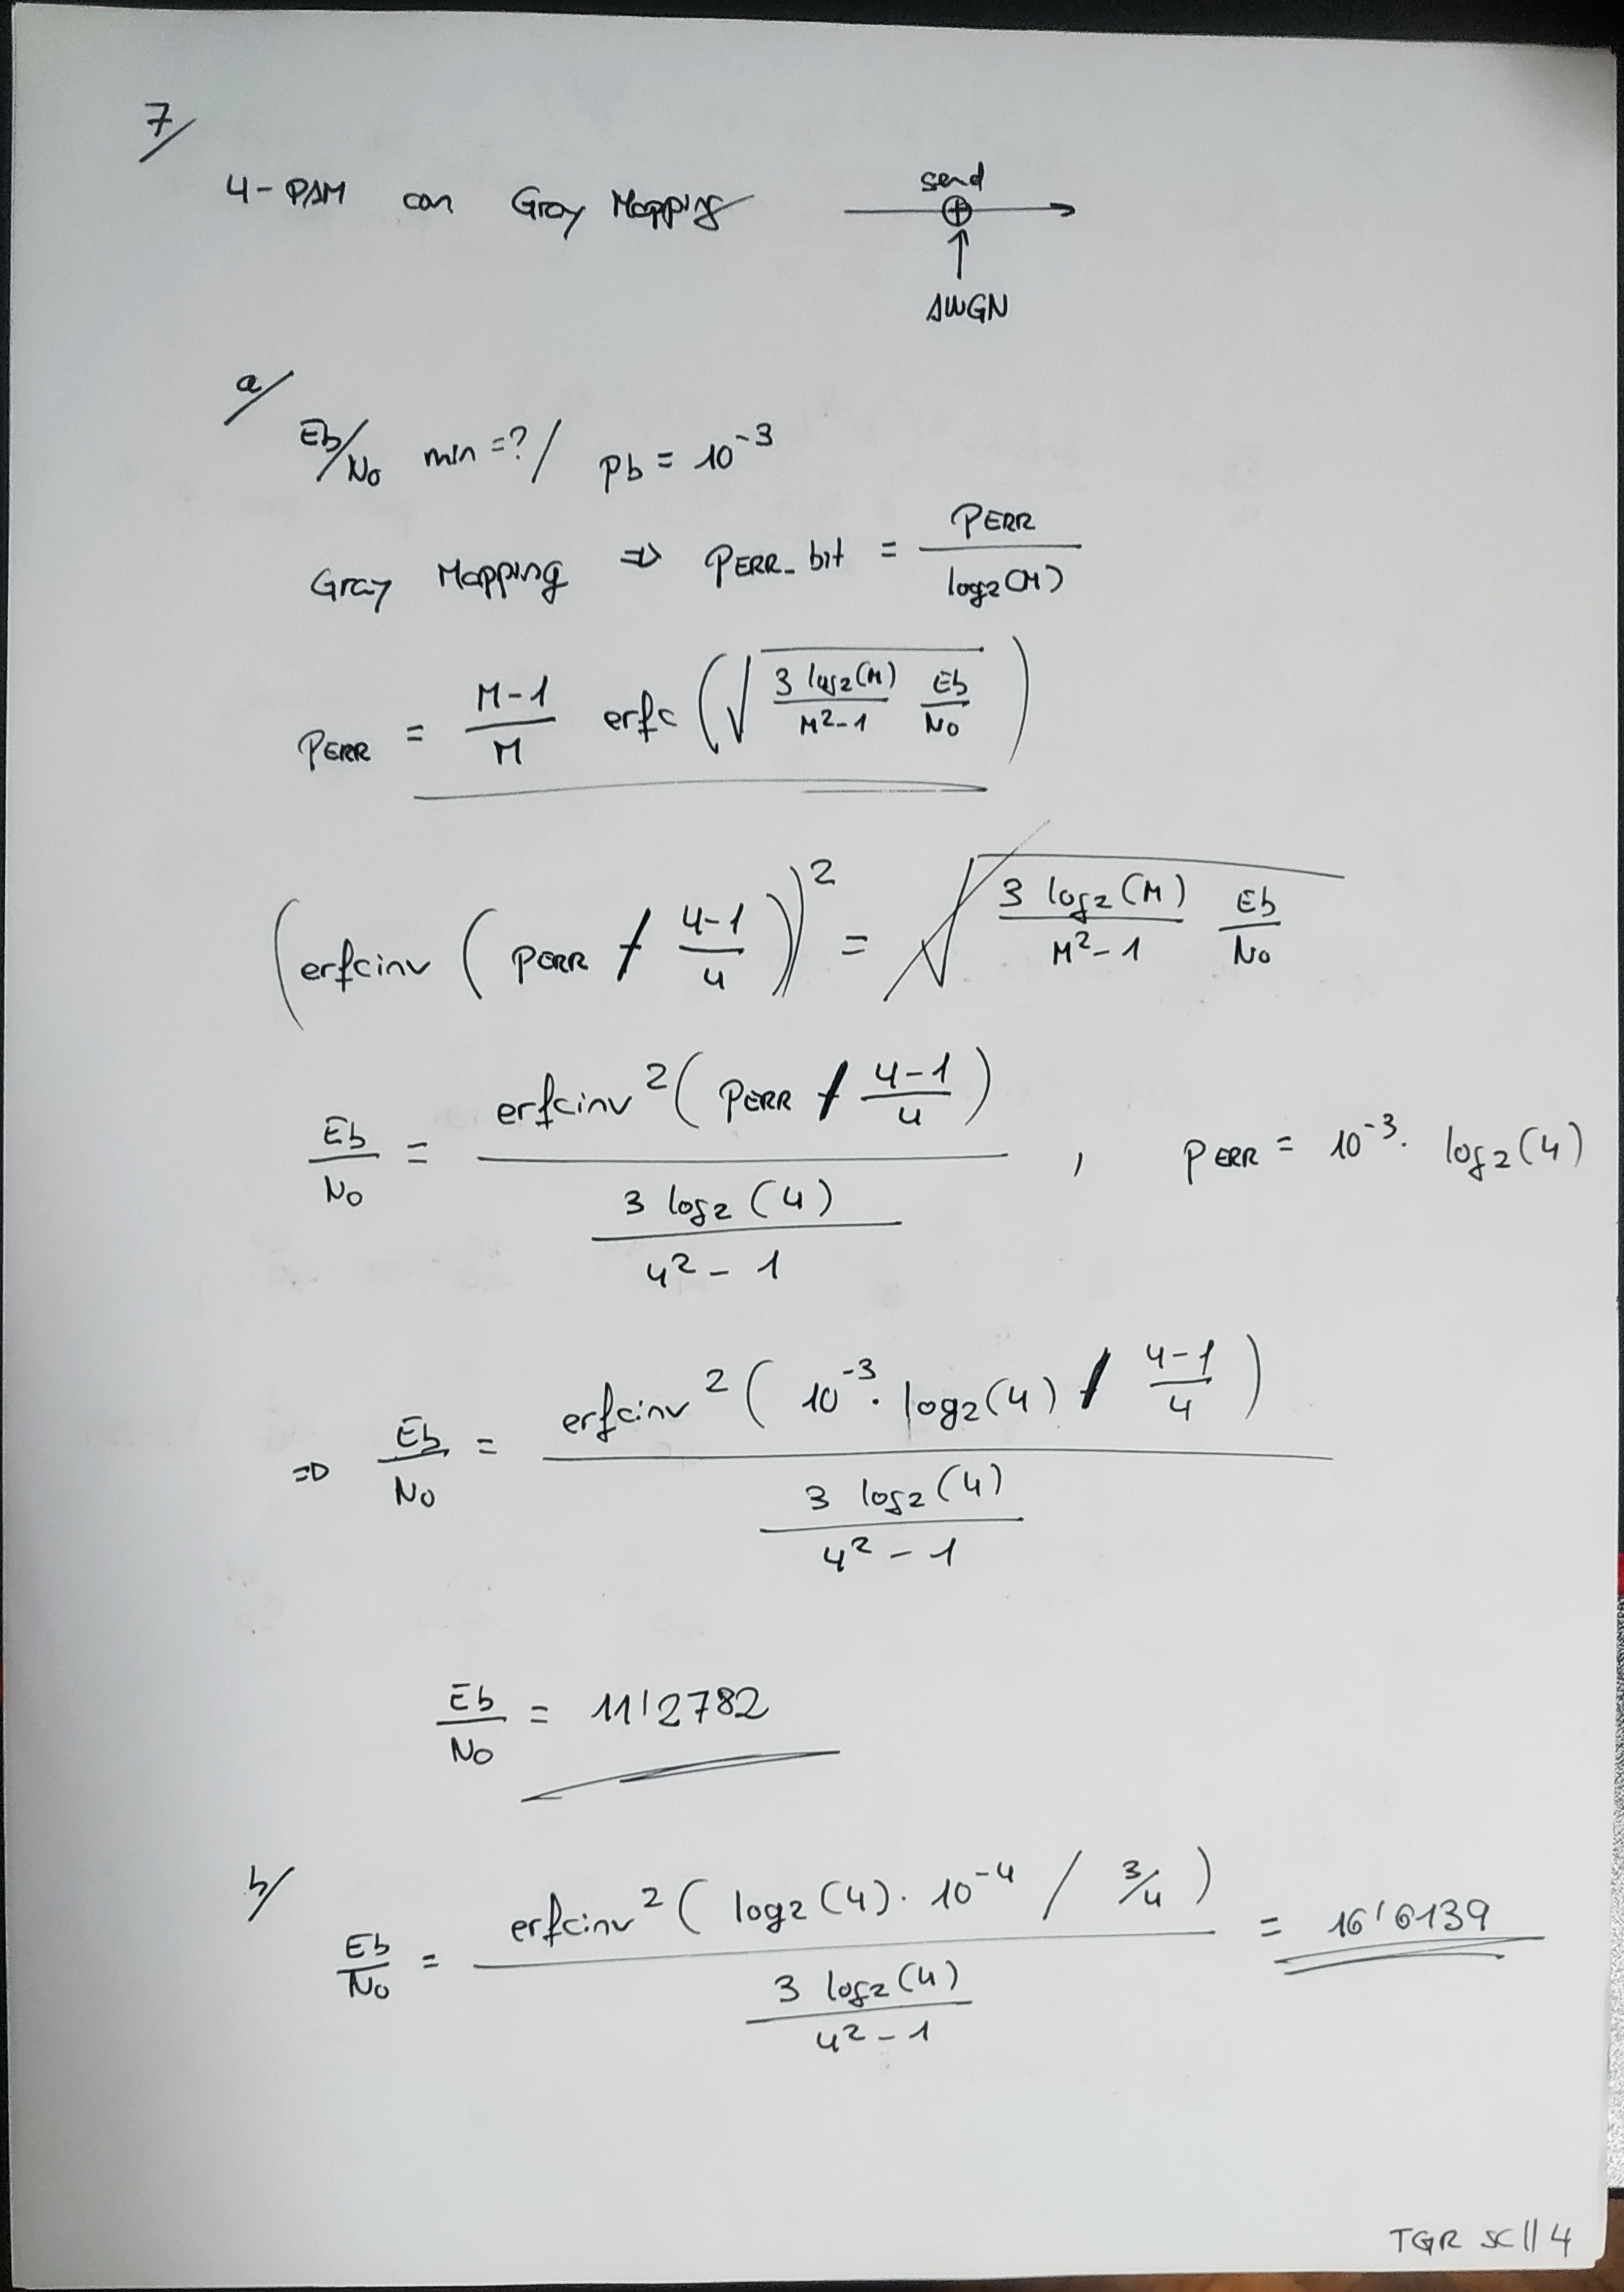 7/
4-PAM con Gray Mapping
send
⊕
↑
AWGN
a/
Eb/No min =? / pb = 10^-3
Gray Mapping ⇒ PERR_bit = PERR / log2(M)
PERR = (M-1)/M erfc( √( (3 log2(M))/(M^2-1) Eb/No ) )
( erfcinv ( PERR / (4-1)/4 ) )^2 = √( (3 log2(M))/(M^2-1) Eb/No )
Eb/No = erfcinv^2( PERR / (4-1)/4 ) / ( (3 log2(4))/(4^2-1) ) , PERR = 10^-3 · log2(4)
⇒ Eb/No = erfcinv^2( 10^-3 · log2(4) / (4-1)/4 ) / ( (3 log2(4))/(4^2-1) )
Eb/No = 11'2782
b/
Eb/No = erfcinv^2( log2(4) · 10^-4 / 3/4 ) / ( (3 log2(4))/(4^2-1) ) = 16'6139
TGR SC || 4